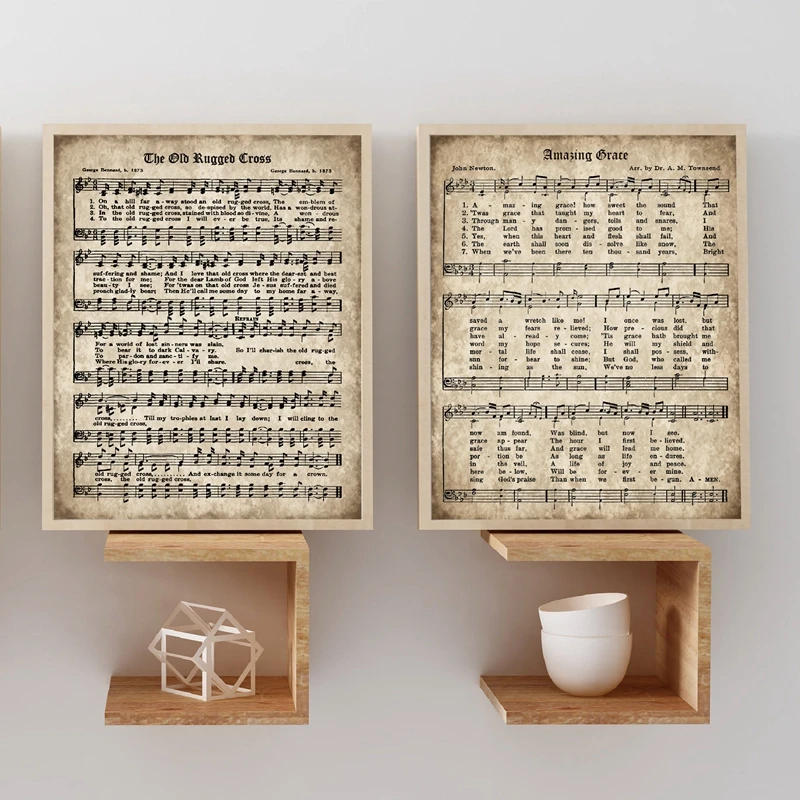 The Old Rugged Cross
George Bennard, b. 1873 George Bennard, b. 1873
1. On a hill far a-way stood an old rug-ged cross, The em-blem of
2. Oh, that old rug-ged cross, so de-spised by the world, Has a won-drous at-
3. In the old rug-ged cross, stained with blood so di-vine, A won-drous
4. To the old rug-ged cross I will ev-er be true, Its shame and re-
suf-fering and shame; And I love that old cross where the dear-est and best
trac-tion for me; For the dear Lamb of God left His glo-ry a-bove
beau-ty I see; For 'twas on that old cross Je-sus suf-fered and died
proach glad-ly bear; Then He'll call me some day to my home far a-way,
REFRAIN
For a world of lost sin-ners was slain.
To bear it to dark Cal-va-ry. So I'll cher-ish the old rug-ged
To par-don and sanc-ti-fy me.
Where His glo-ry for-ev-er I'll share. cross, the
cross,........ Till my tro-phies at last I lay down; I will cling to the
old rug-ged cross,
old rug-ged cross,.......... And ex-change it some day for a crown.
cross, the old rug-ged cross,
Amazing Grace
John Newton. Arr. by Dr. A. M. Townsend.
1. A - maz - ing grace! how sweet the sound That
2. 'Twas grace that taught my heart to fear, And
3. Through man - y dan - gers, toils and snares, I
4. The Lord has prom - ised good to me; His
5. Yes, when this heart and flesh shall fail, And
6. The earth shall soon dis - solve like snow, The
7. When we've been there ten thou - sand years, Bright
saved a wretch like me! I once was lost, but
grace my fears re - lieved; How pre - cious did that
have al - read - y come; 'Tis grace hath brought me
word my hope se - cures; He will my shield and
mor - tal life shall cease, I shall pos - sess, with-
sun for - bear to shine; But God, who called me
shin - ing as the sun, We've no less days to
now am found, Was blind, but now I see.
grace ap - pear The hour I first be - lieved.
safe thus far, And grace will lead me home.
por - tion be As long as life en - dures.
in the veil, A life of joy and peace.
here be - low, Will be for - ev - er mine.
sing God's praise Than when we first be - gun. A - MEN.